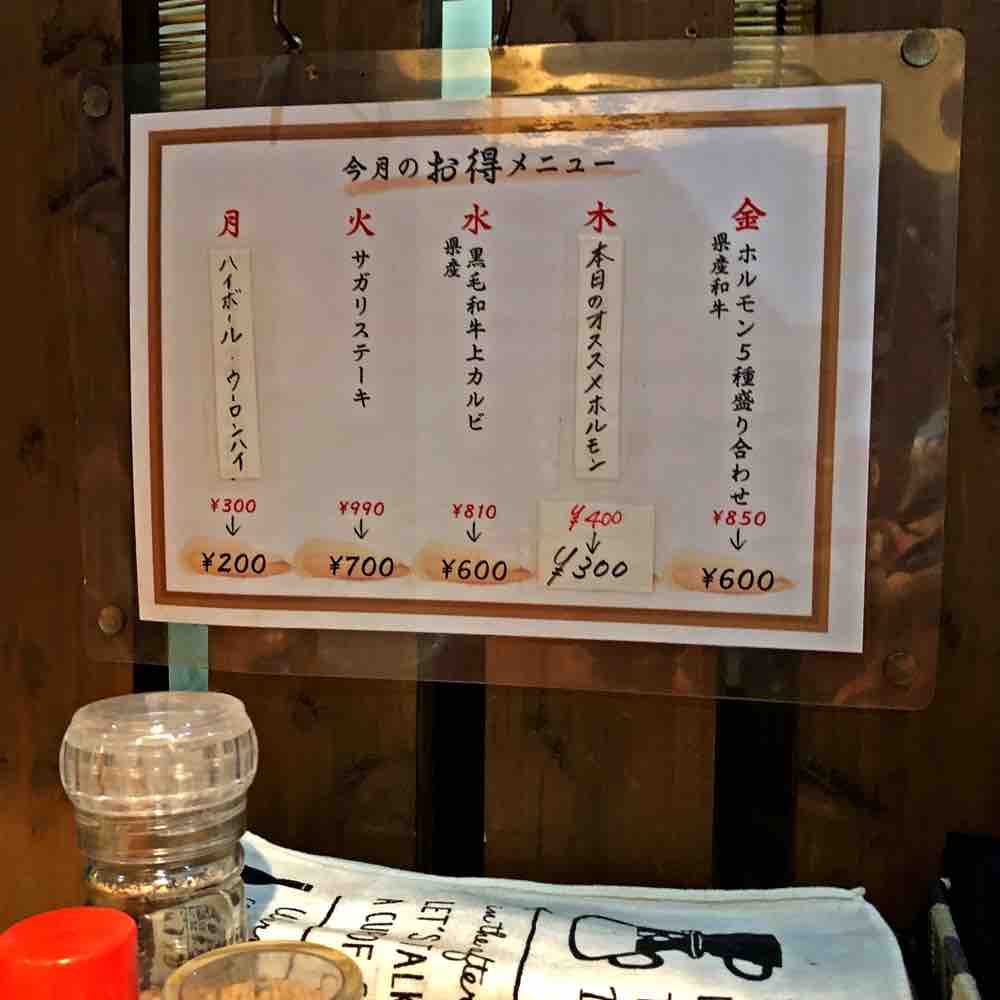 今月のお得メニュー
月
ハイボール・ウーロンハイ
¥300
↓
¥200
火
サガリステーキ
¥990
↓
¥700
水
県産
黒毛和牛上カルビ
¥810
↓
¥600
木
本日のオススメホルモン
¥400
↓
¥300
金
県産和牛
ホルモン5種盛り合わせ
¥850
↓
¥600
LET'S TALK
A CUP